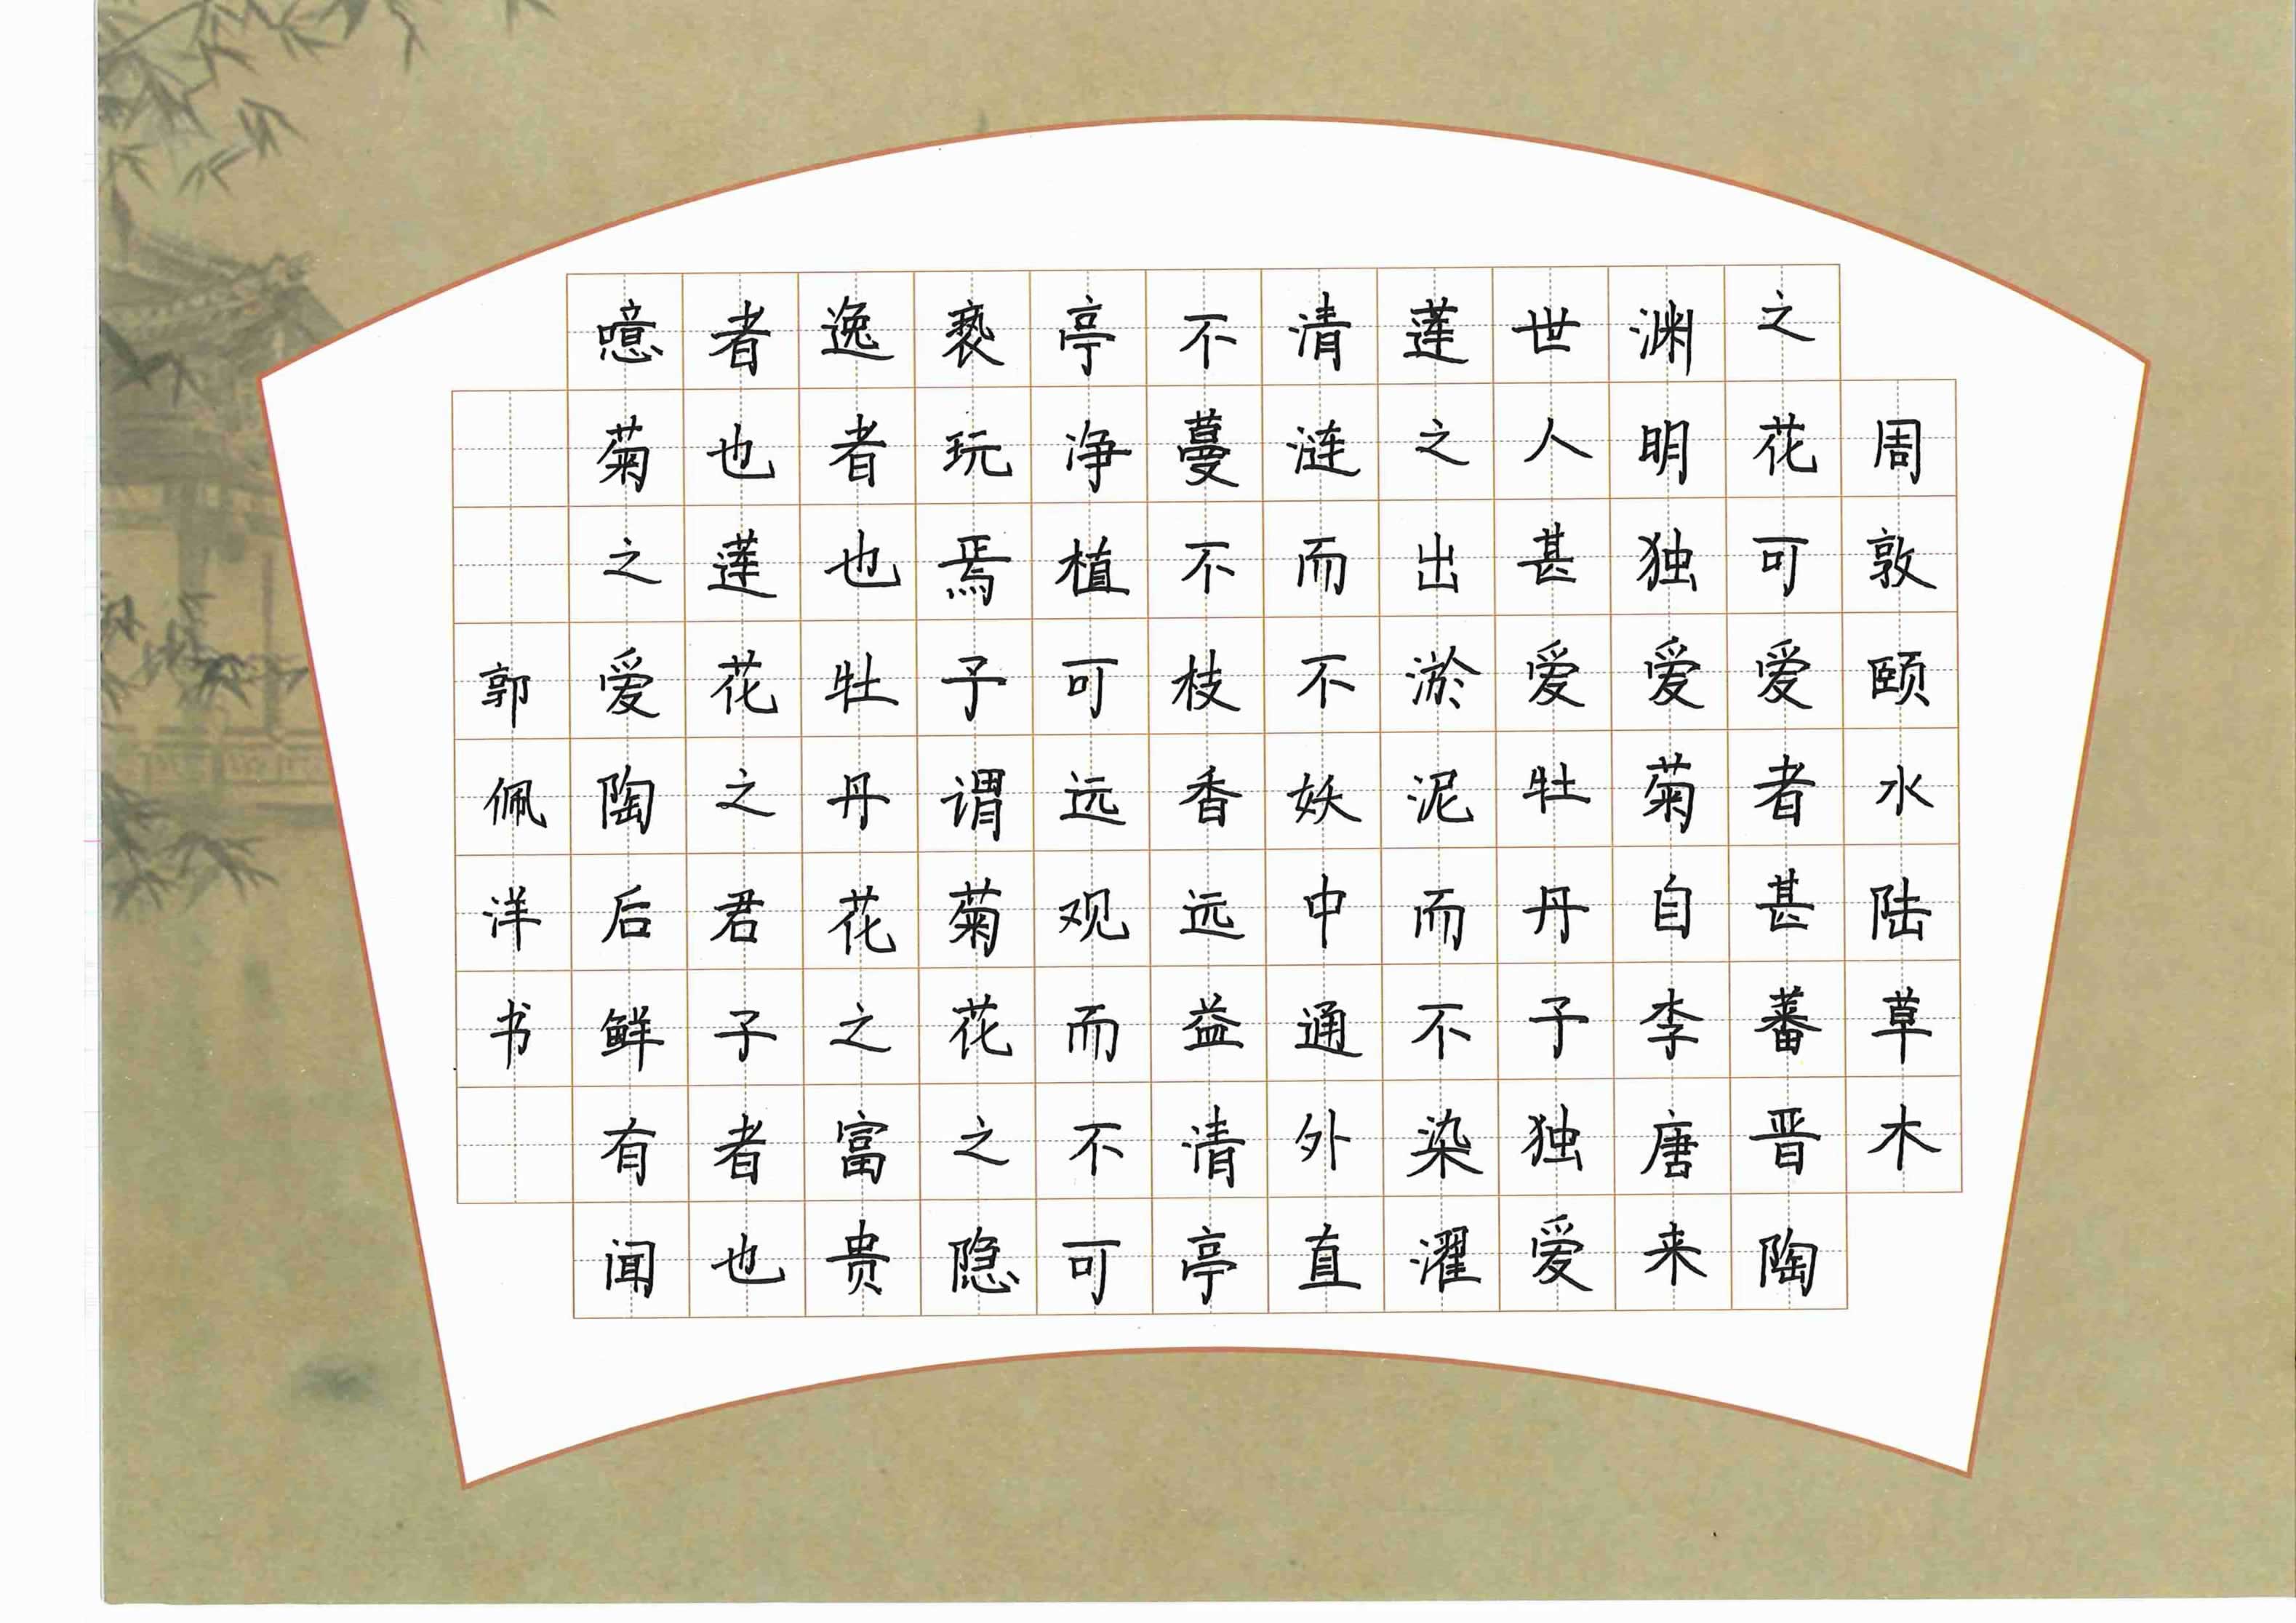 周敦颐水陆草木
之花可爱者甚蕃晋陶
渊明独爱菊自李唐来
世人甚爱牡丹予独爱
莲之出淤泥而不染濯
清涟而不妖中通外直
不蔓不枝香远益清亭
亭净植可远观而不可
亵玩焉予谓菊花之隐
逸者也牡丹花之富贵
者也莲花之君子者也
噫菊之爱陶后鲜有闻
郭佩洋书